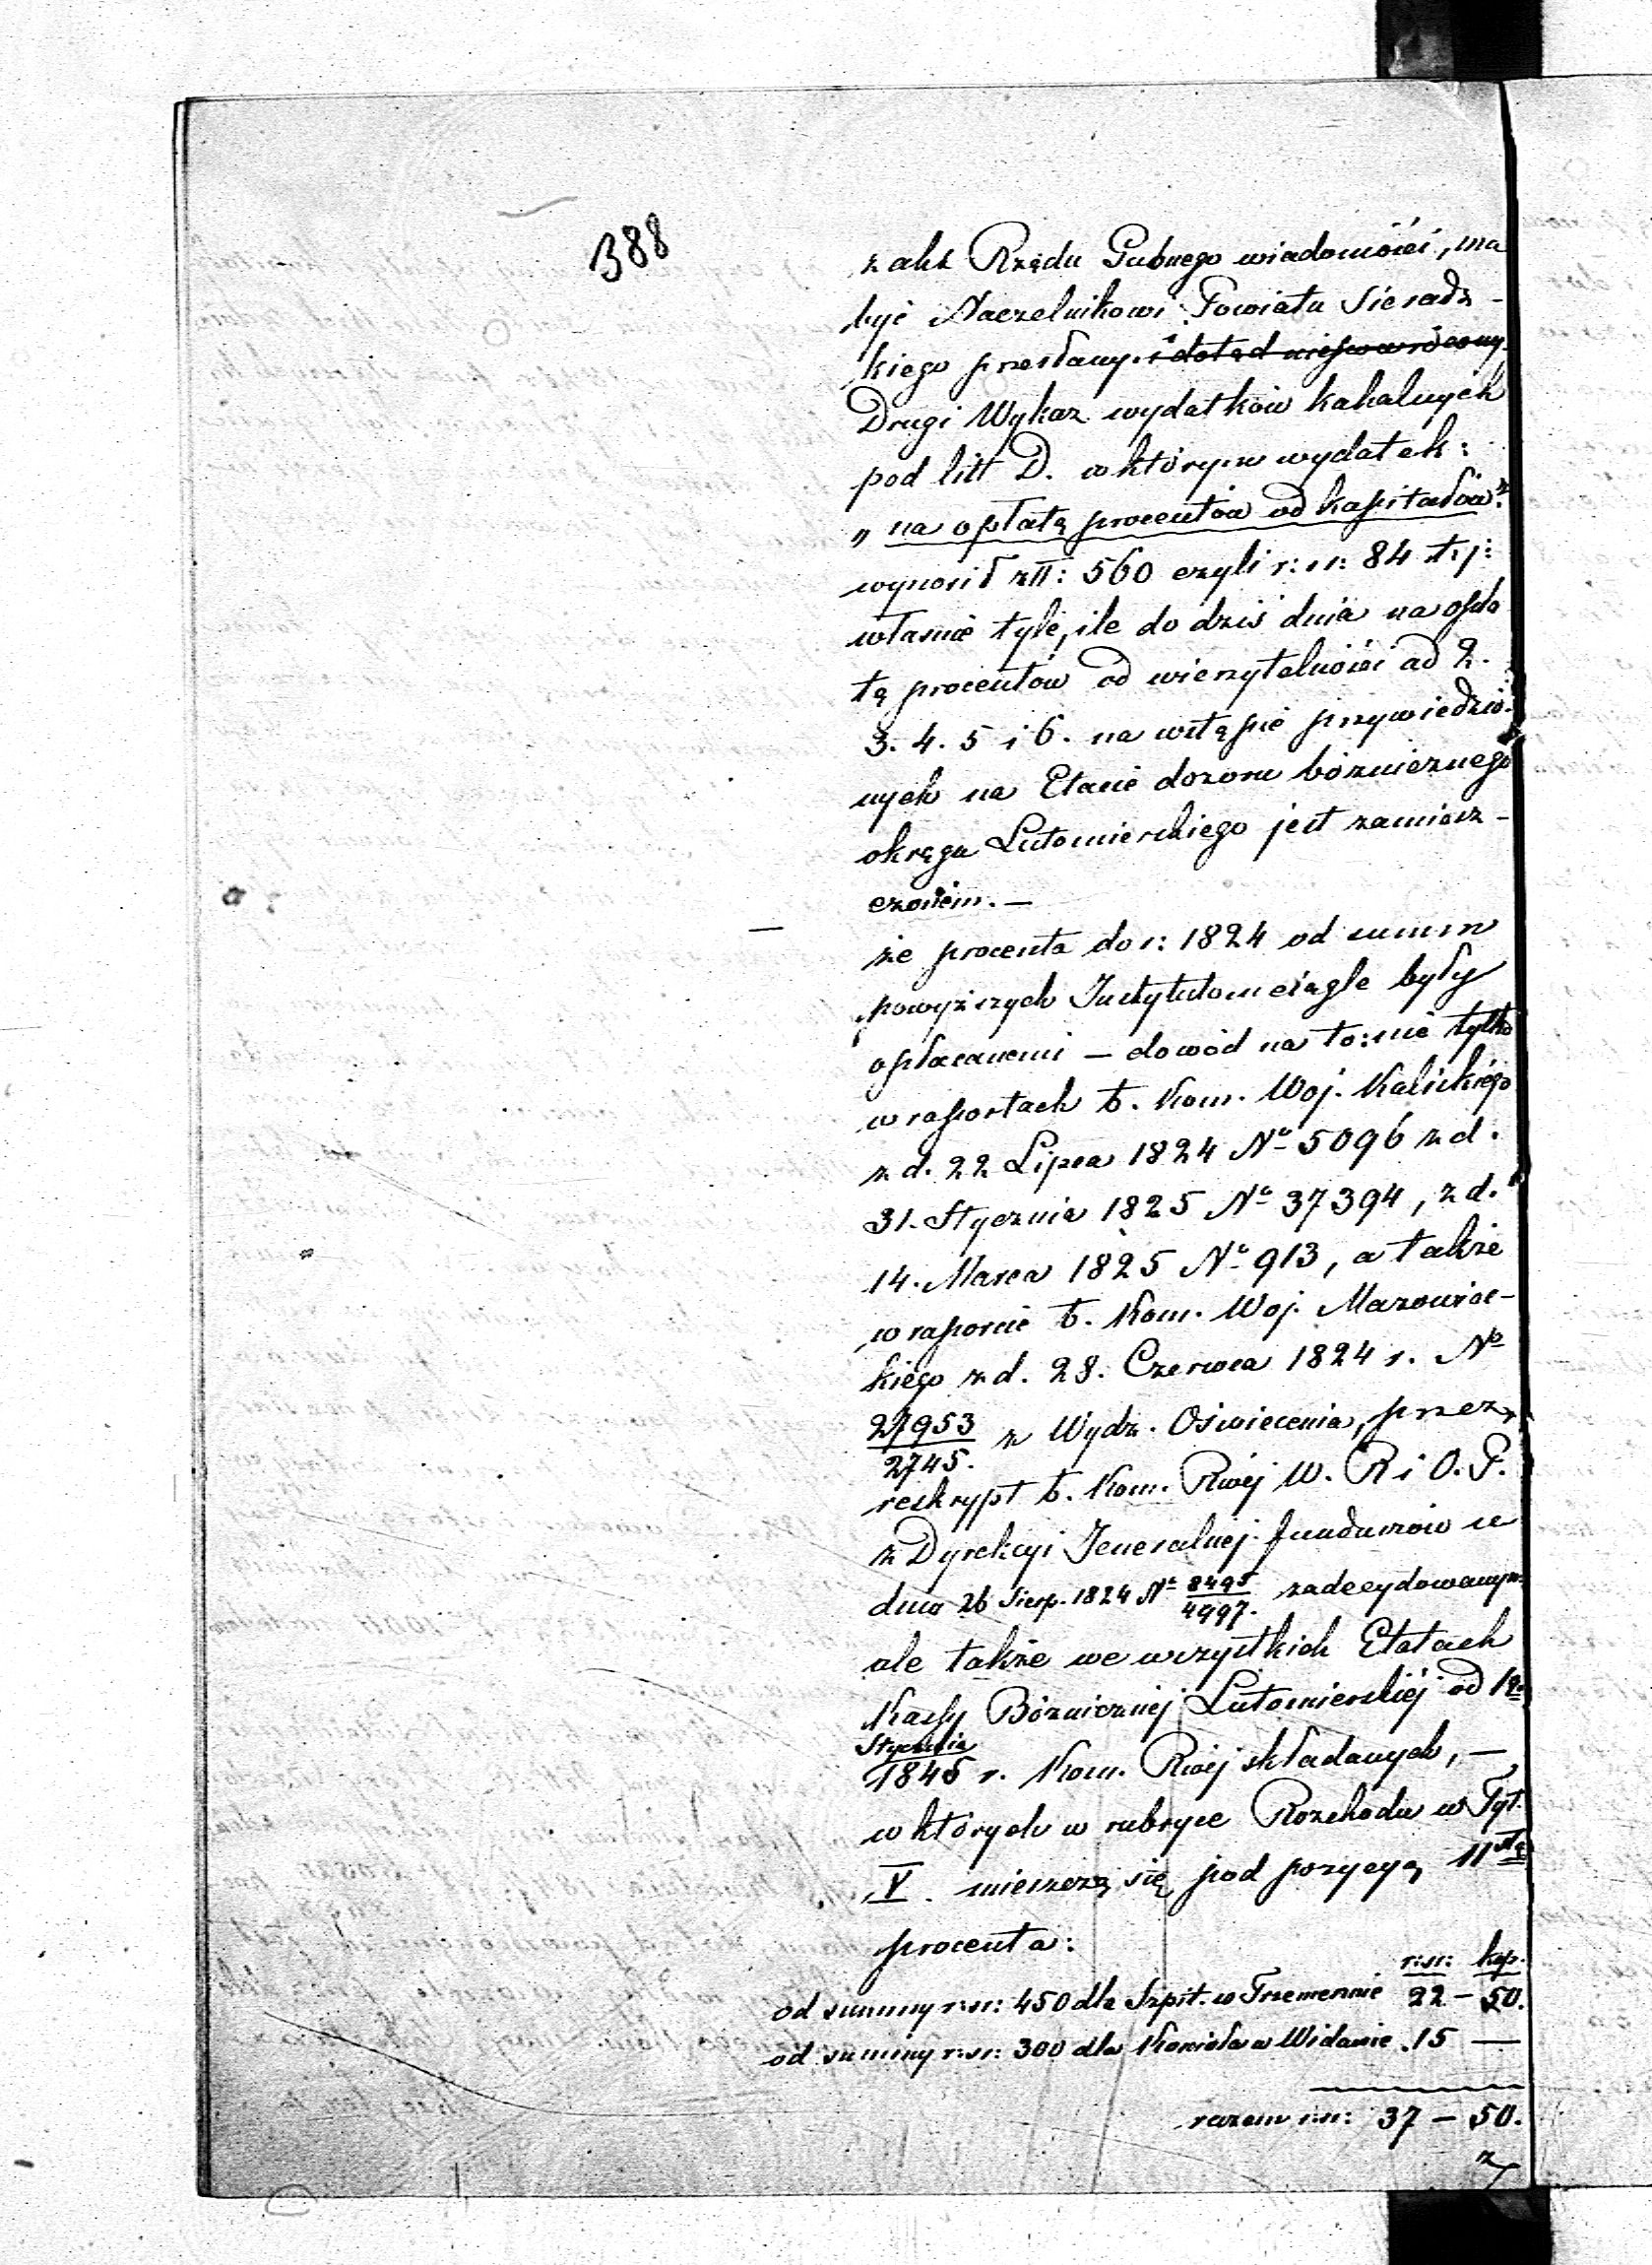 388
z akt Rządu Gubnego wiadomości, ma
być Naczelnikowi Powiatu Sieradz-
kiego przesłany. i dotąd niepowrócony.
Drugi Wykaz wydatków kahalnych
pod litt D. w którym wydatek:
„na opłatę procentów od kapitałów"
wynosił złł: 560 czyli r: sr: 84 t. j:
własnie tyle, ile do dziś dnia na opła
tę procentów od wierzytelności ad 2.
3. 4. 5 i 6. na wstępie przywiedzio-
nych na Etacie dozoru bóżnicznego
okręgu Lutomierskiego jest zamiesz-
czonem. —
że procenta do r: 1824 od summ
powyższych Instytutom ciągle były
opłacanemi — dowód na to: nie tylko
w raportach b. Kom. Woj. Kaliskiego
z d. 22 Lipca 1824 No 5096 z d.
31. Stycznia 1825 No 37394, z d.
14. Marca 1825 No 913, a także
w raporcie b. Kom. Woj. Mazowiec-
kiego z d. 28. Czerwca 1824 r. No
27953/2745. z Wydz. Oświecenia, przez
reskrypt b. Kom. Rwéj W. R i O. P.
z Dyrekcyi Jeneralnej funduszów w
dniu 26 Sierp. 1824 No 8495/4997. zadecydowanym
ale także we wszystkich Etatach
Kassy Bóżnicznéj Lutomierskiéj od 1go
Stycznia
1845 r. Kom. Rwéj składanych, —
w których w rubryce Rozchodu w Tyt.
V. mieszczą się pod pozycyą 11stą
procenta:
r: sr: kop.
od summy r: sr: 450 dla Szpit. w Trzemesznie 22 — 50.
od summy r: sr: 300 dla Kościoła w Widawie . 15 —
razem r: sr: 37 — 50.
z